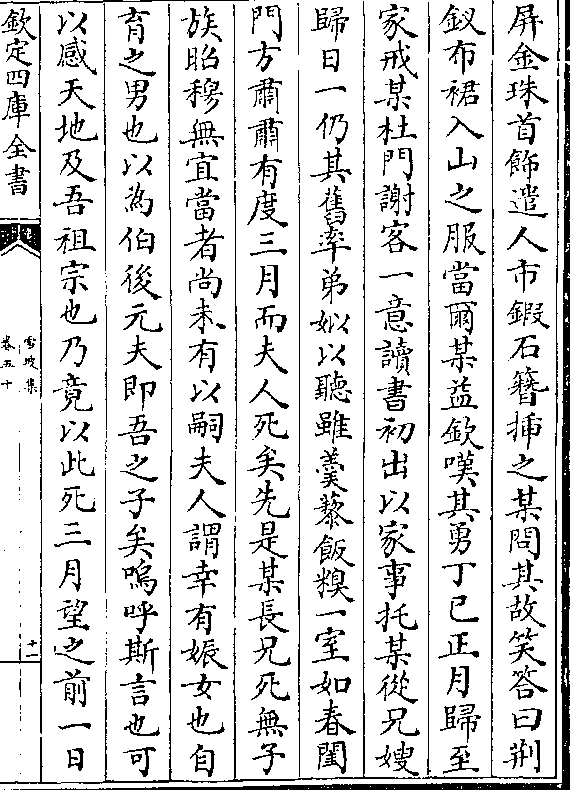 屏金珠首飾遣人市鍜石簪揷之某問其故笑答曰荆
釵布裙入山之服當爾某益欽嘆其勇丁巳正月歸至
家戒某杜門謝客一意讀書初出以家事托某從兄嫂
歸日一仍其舊率弟姒以聽雖羮藜飯糗一室如春閨
門方肅肅有度三月而夫人死矣先是某長兄死無子
族昭穆無宜當者尚未有以嗣夫人謂幸有娠女也自
育之男也以為伯後元夫即吾之子矣嗚呼斯言也可
以感天地及吾祖宗也乃竟以此死三月望之前一日
欽定四庫全書
雪坡集
卷五十
十一